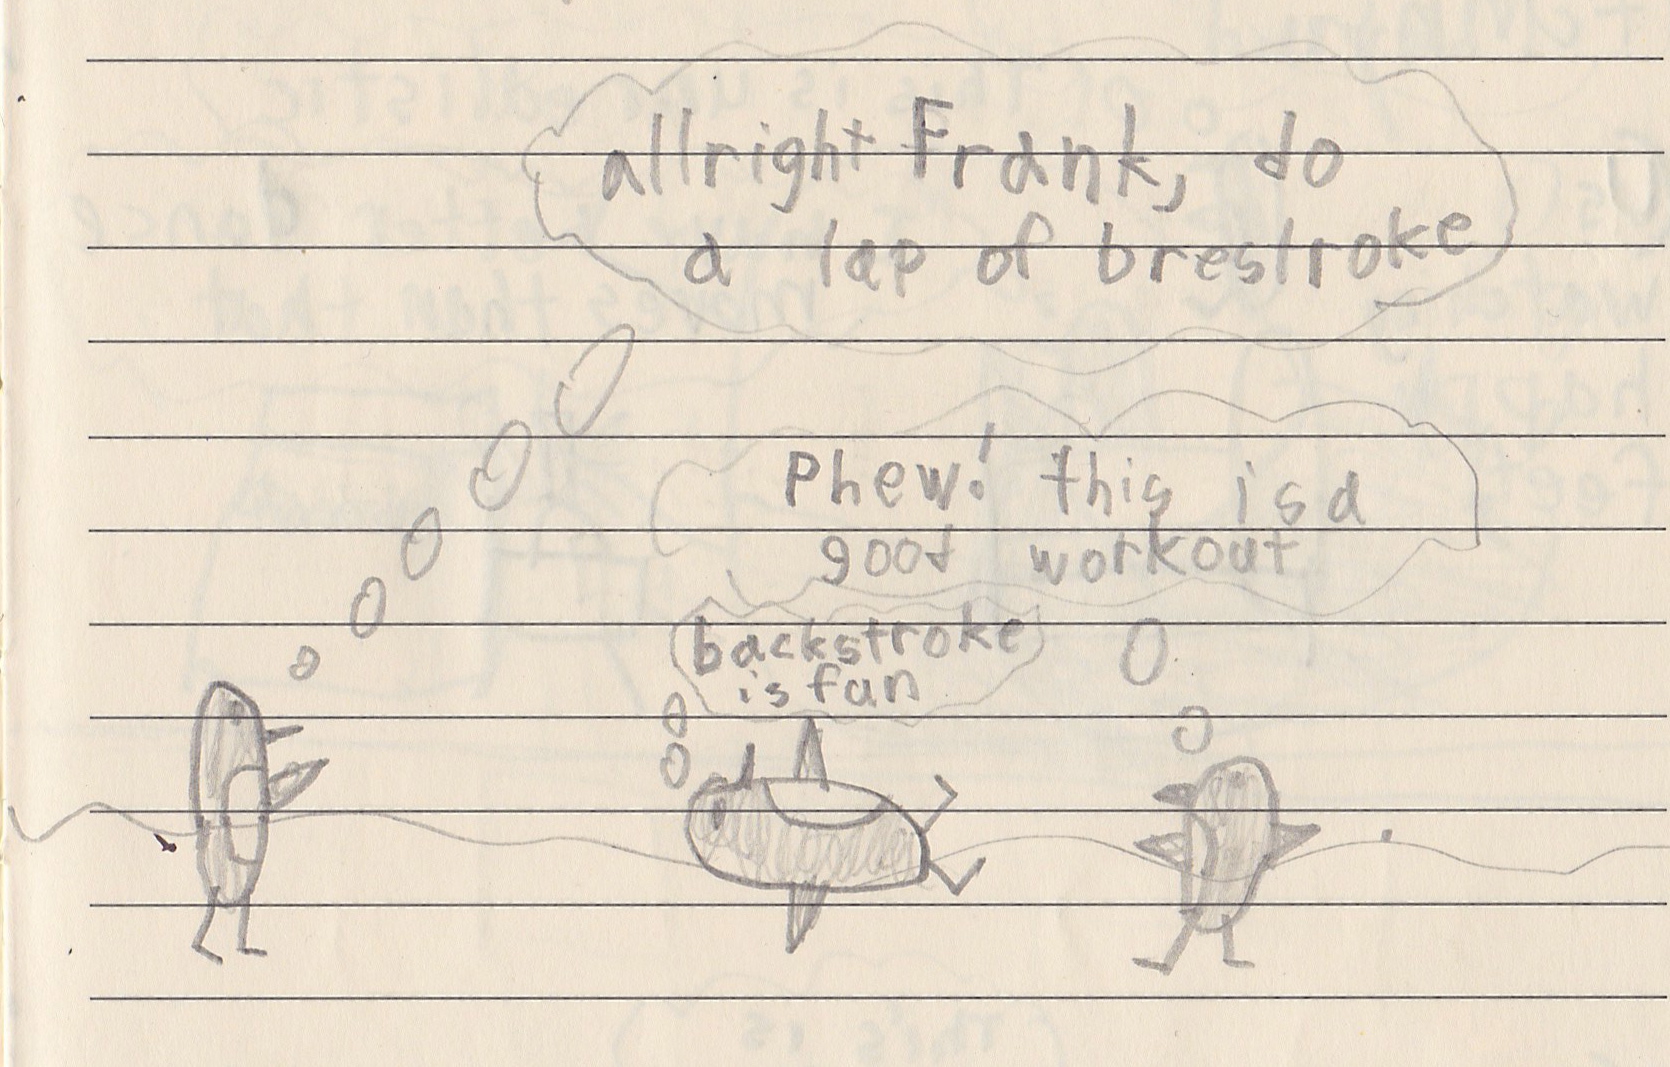 allright Frank, do
a lap of brestroke
Phew! this is a
good workout
backstroke
is fun